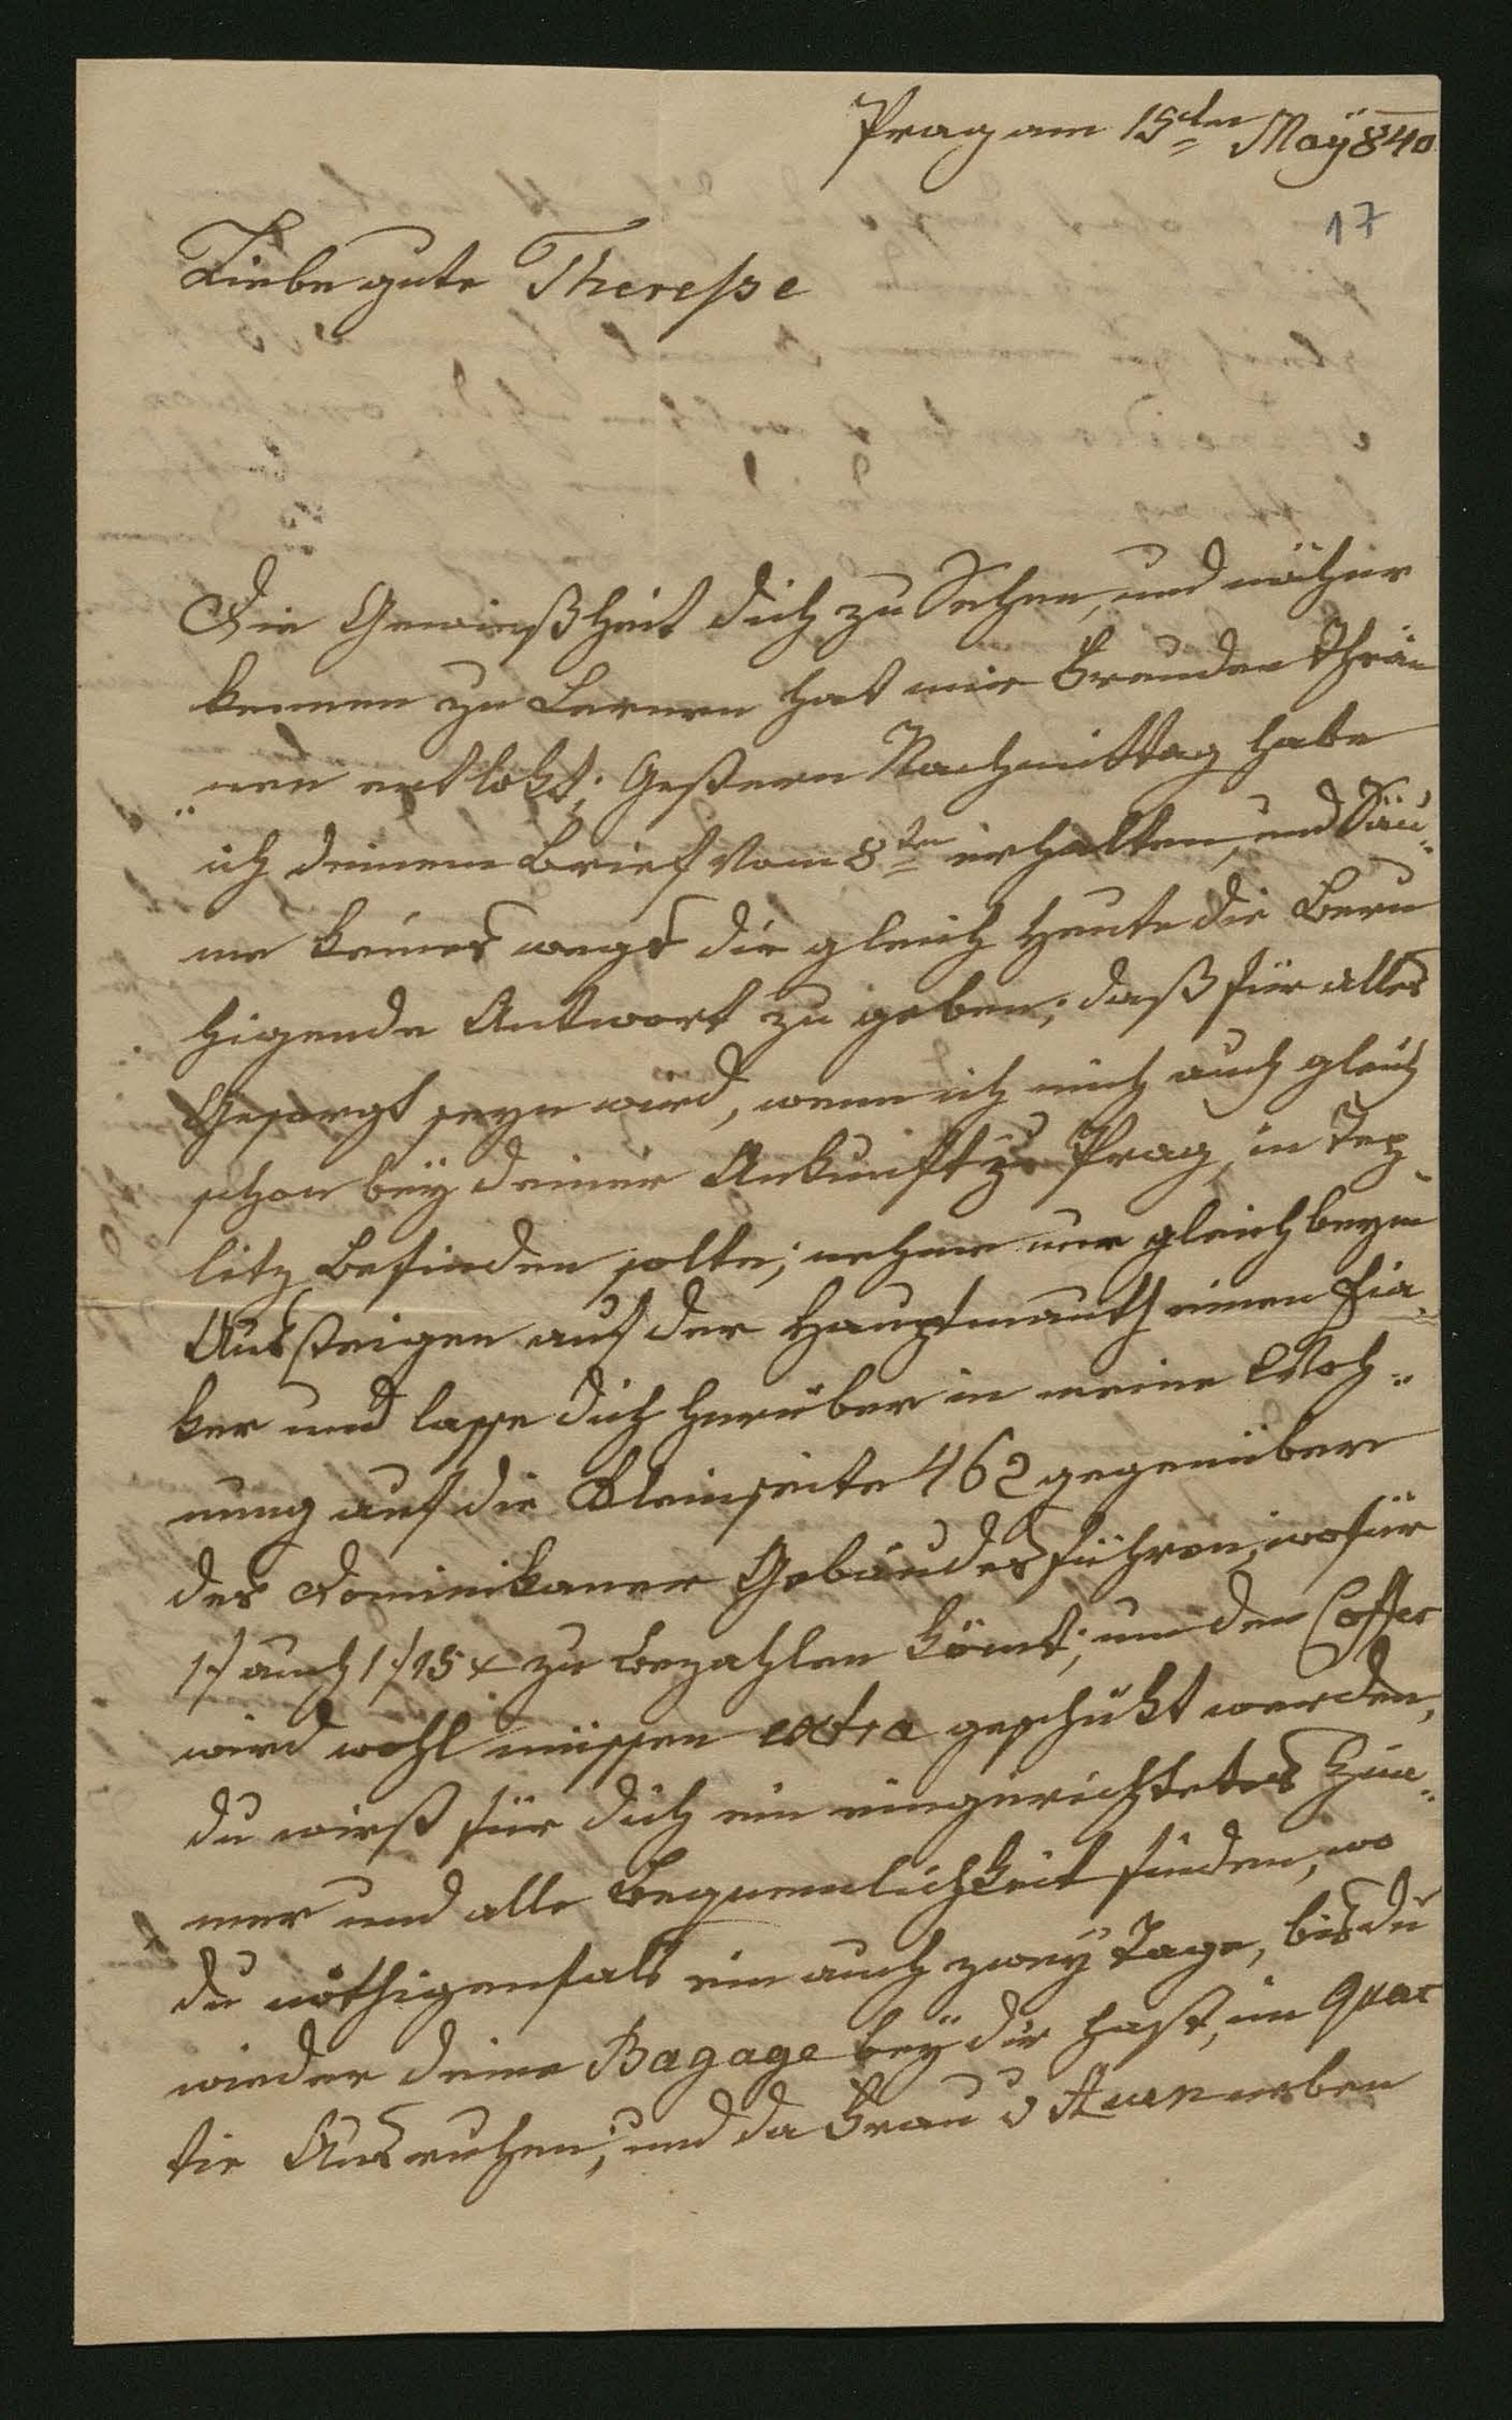 Prag am 15ten Maÿ 840
17
Liebe gute Therese
Die Gewießheit dich zu Sehen, und näher
kennen zu Lernen hat mir Freuden thrä„
„nen entlokt; Gestern Nachmittag habe
ich deinem Brief vom 8ten erhalten, und Säu„
me keines wegs dir gleich Heute die Beru
higende Antwort zu geben; daß für alles
Gesorgt seyn wird, wenn ich mich auch gleich
schon beÿ deiner Ankunft zu Prag, in Tep„
litz befinden solte; nehme nur gleich beym
Aussteigen auf der Hauptmauth einen Fia„
ker und lasse dich herüber in meine Woh„
nung auf die Kleinseite 462 gegenüber
des Dominikaner Gebäudes führen, wofür
1f auch 1f 15x zu bezahlen kömt; um den Coffer
wird wohl müssen extra geschikt werden,
du wirst für dich ein eingerichtetes Zim„
mer und alle Bequemlichkeit finden, wo
du nöthigenfals ein auch zweÿ Tage, bis du
wieder deine Bagage beÿ dir hast, im Quar
tir Ausruhen; und da Frau v neben